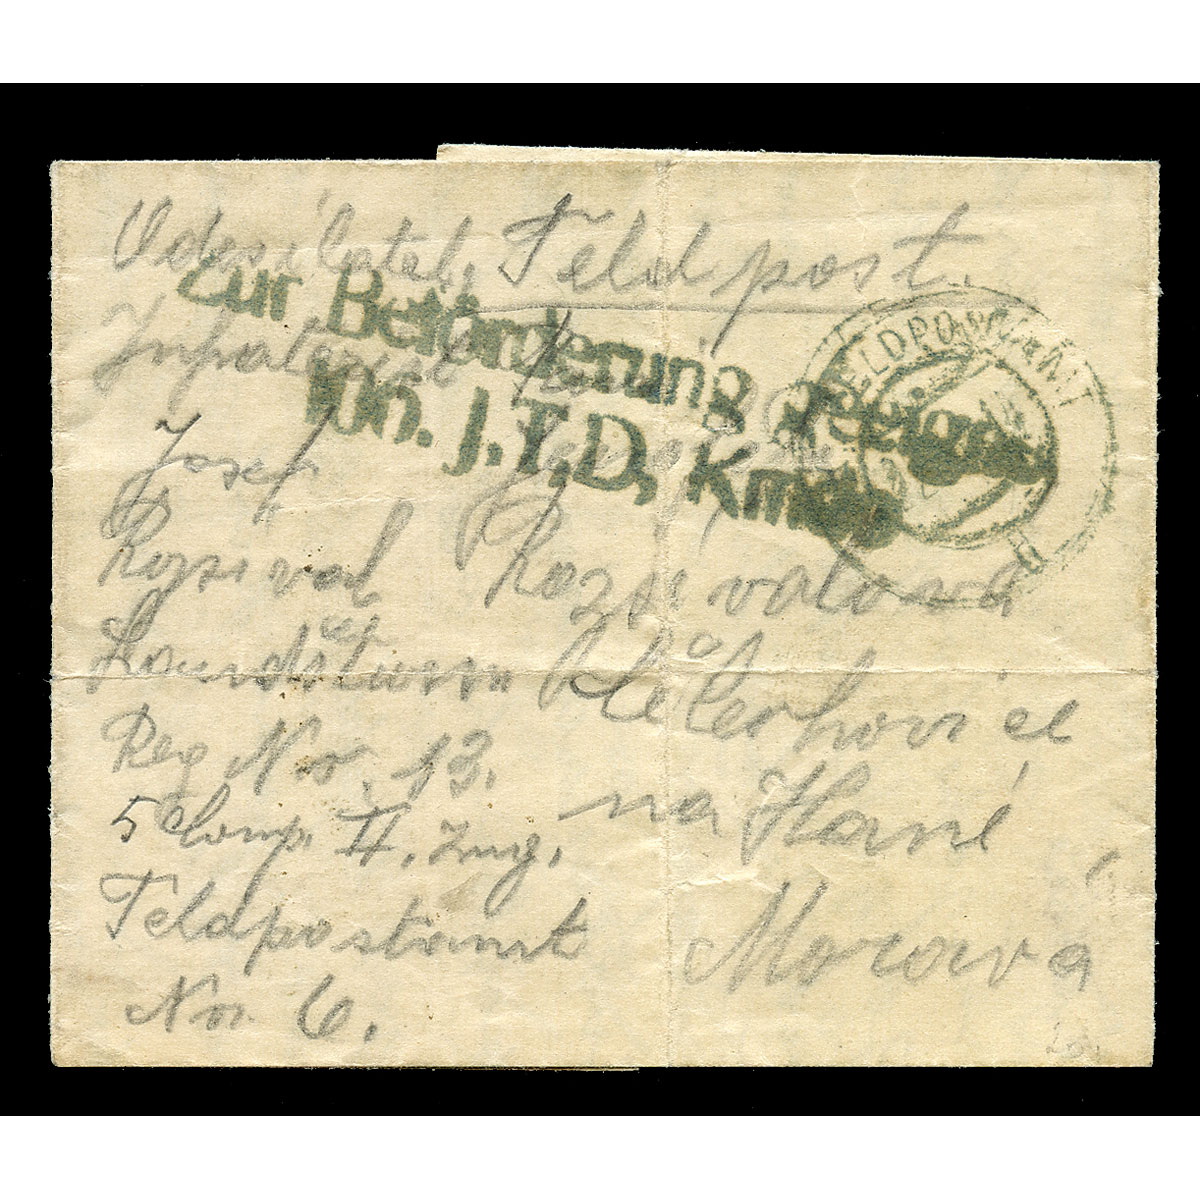 Odesilatel, Feldpost.
Zur Beförderung geeignet
106. J.T.D, Kmdo
FELDPOSTAMT
Infanterist
Josef
Rozsival Rozsívalová
Landsturm
Reg No. 13. na Hané
5 Comp. II. Zug.
Feldpostamt Morava
No. 6.